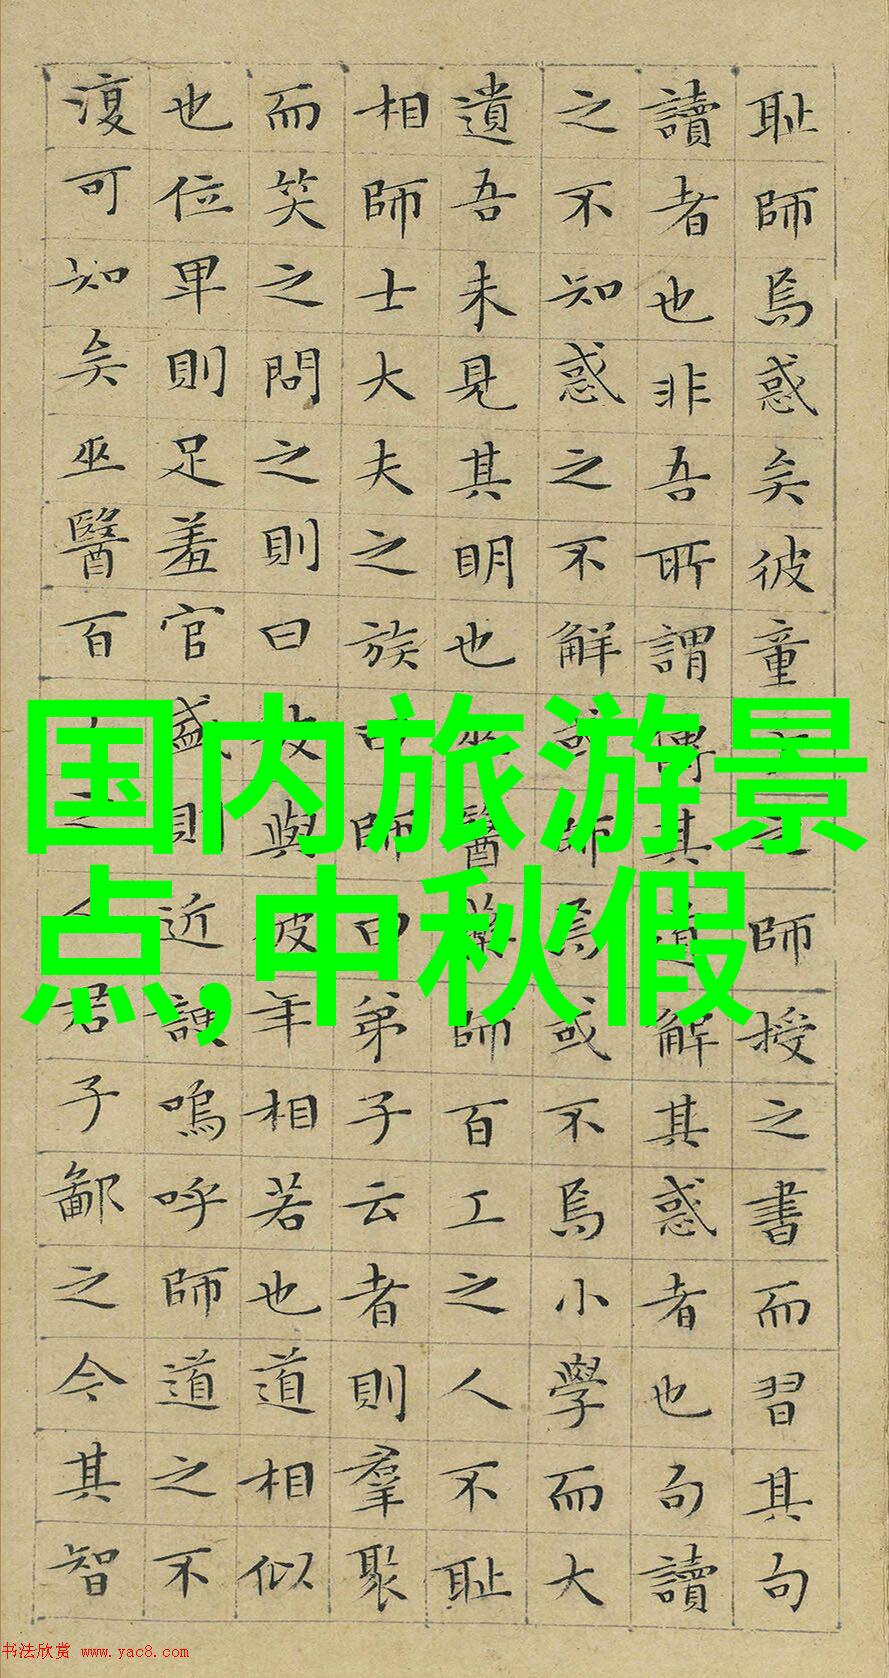 耻師焉惑矣彼童之師授之書而習其句
讀者也非吾所謂傳其道解其惑者也句讀
之不知惑之不解或師焉或不焉小學而大
遺吾未見其明也巫醫師百工之人不耻
相師士大夫之族曰師曰弟子云者則羣聚
而笑之問之則曰彼與彼年相若也道相似
也位卑則足羞官盛則近諛嗚呼師道之不
復可知矣巫醫百之君子鄙之今其智
国内旅游景
点,中秋假
书法欣赏 www.yac8.com